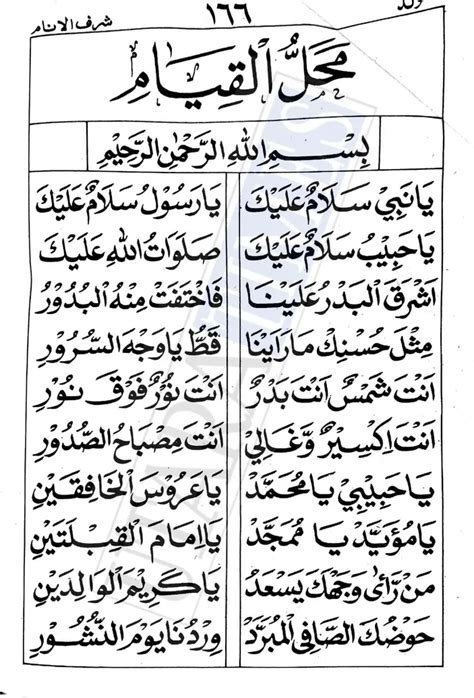 ولد ١٦٦ شرف الانام
مَحَلُّ الْقِيَامِ
بِسْمِ اللهِ الرَّحْمٰنِ الرَّحِيْمِ
يَا نَبِيْ سَلَامٌ عَلَيْكَ يَا رَسُوْلُ سَلَامٌ عَلَيْكَ
يَا حَبِيْبُ سَلَامٌ عَلَيْكَ صَلَوَاتُ اللهِ عَلَيْكَ
اَشْرَقَ الْبَدْرُ عَلَيْنَا فَاخْتَفَتْ مِنْهُ الْبُدُوْرُ
مِثْلَ حُسْنِكَ مَا رَاَيْنَا قَطُّ يَا وَجْهَ السُّرُوْرِ
اَنْتَ شَمْسٌ اَنْتَ بَدْرٌ اَنْتَ نُوْرٌ فَوْقَ نُوْرِ
اَنْتَ اِكْسِيْرٌ وَّغَالِيْ اَنْتَ مِصْبَاحُ الصُّدُوْرِ
يَا حَبِيْبِيْ يَا مُحَمَّدْ يَا عَرُوْسَ الْخَافِقَيْنِ
يَا مُؤَيَّدْ يَا مُمَجَّدْ يَا اِمَامَ الْقِبْلَتَيْنِ
مَنْ رَّاٰى وَجْهَكَ يَسْعَدُ يَا كَرِيْمَ الْوَالِدَيْنِ
حَوْضُكَ الصَّافِي الْمُبَرَّدْ وِرْدُنَا يَوْمَ النُّشُوْرِ